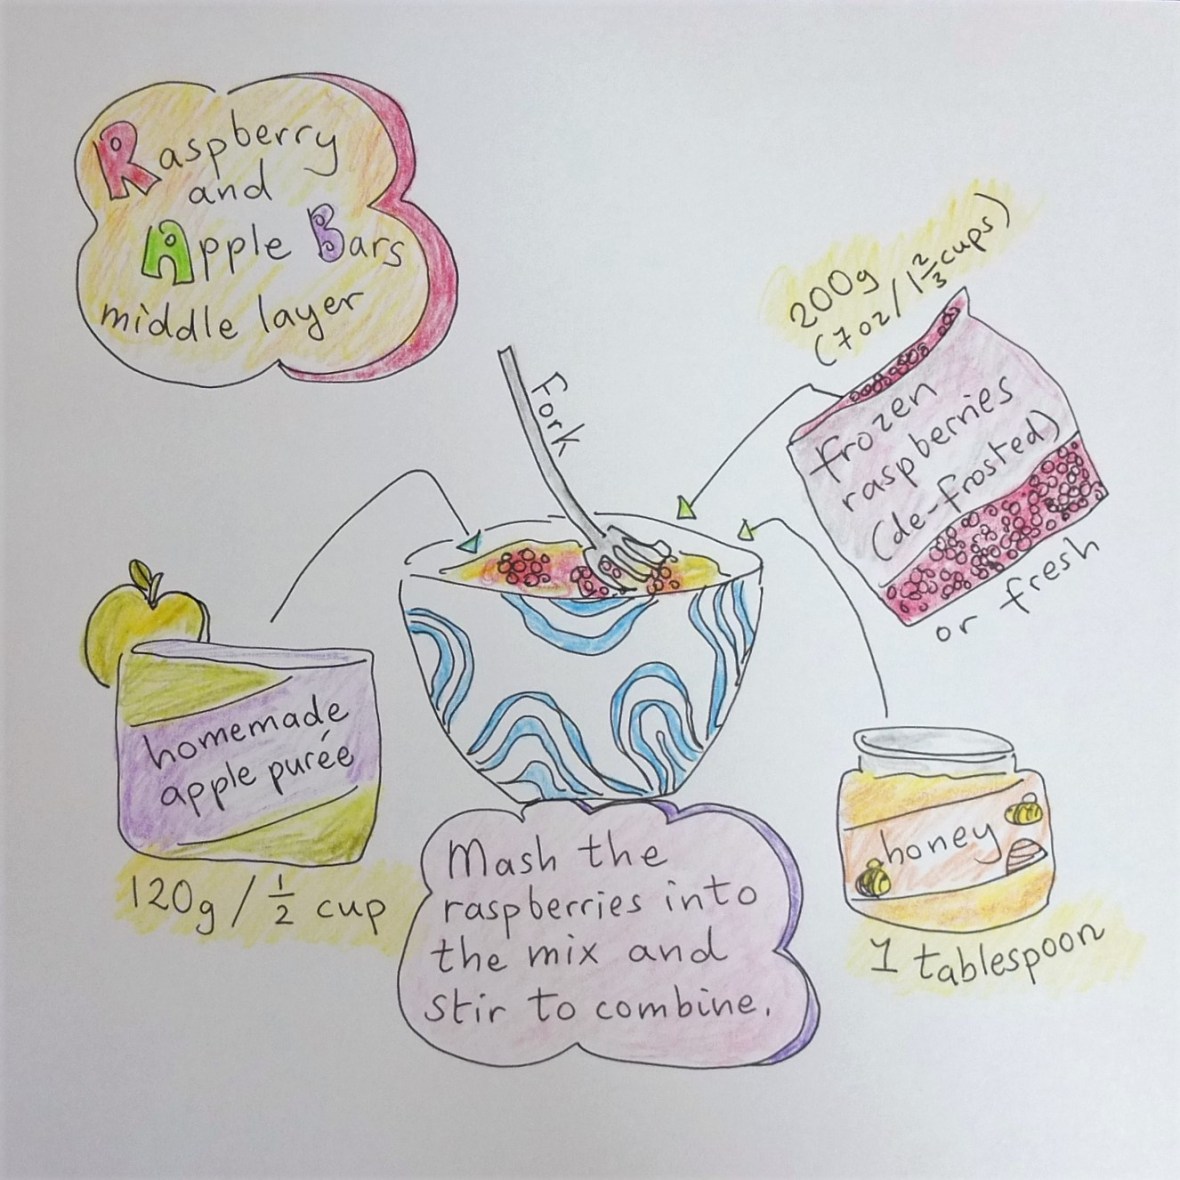 Raspberry
and
Apple Bars
middle layer
Fork
200g
(7oz/1 2/3 cups)
frozen
raspberries
(de-frosted)
or fresh
homemade
apple purée
120g / 1/2 cup
honey
1 tablespoon
Mash the
raspberries into
the mix and
stir to combine.